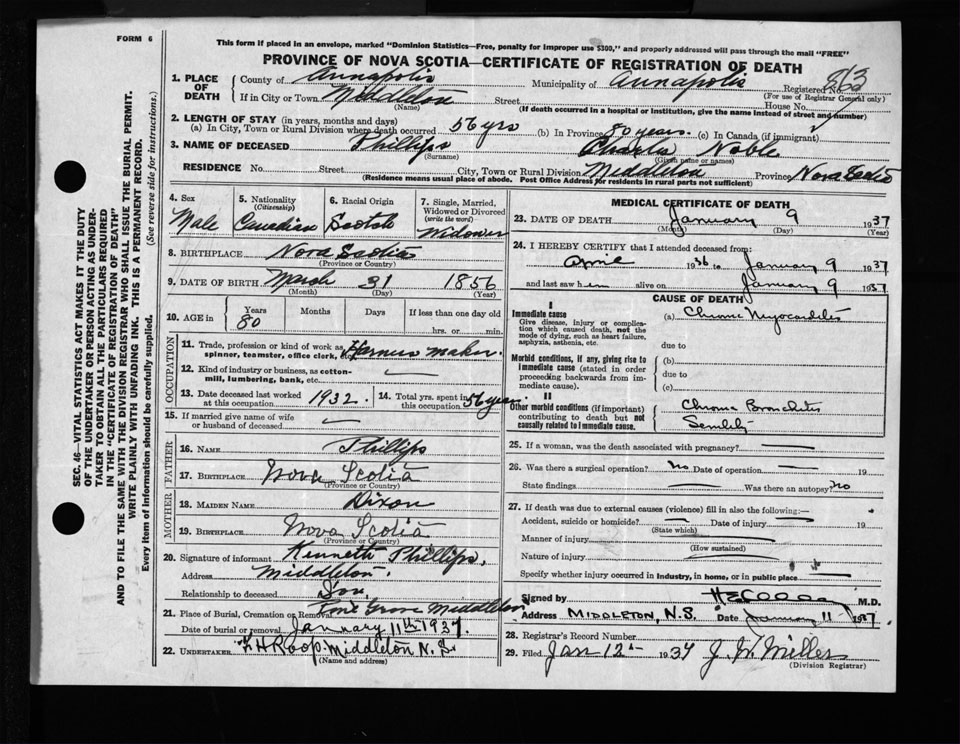 FORM 6
This form if placed in an envelope, marked "Dominion Statistics—Free, penalty for improper use $300," and properly addressed will pass through the mail "FREE"
PROVINCE OF NOVA SCOTIA—CERTIFICATE OF REGISTRATION OF DEATH
863
1. PLACE OF DEATH County of Annapolis Municipality of Annapolis Registered No.
(For use of Registrar General only)
If in City or Town Middleton Street House No.
(Name) (If death occurred in a hospital or institution, give the name instead of street and number)
2. LENGTH OF STAY (in years, months and days)
(a) In City, Town or Rural Division where death occurred 56 yrs (b) In Province 80 years. (c) In Canada (if immigrant)
3. NAME OF DECEASED Phillips Charles Noble
(Surname) (Given name or names)
RESIDENCE No. Street City, Town or Rural Division Middleton Province Nova Scotia
(Residence means usual place of abode. Post Office Address for residents in rural parts not sufficient)
4. Sex Male
5. Nationality (Citizenship) Canadian
6. Racial Origin Scotch
7. Single, Married, Widowed or Divorced (write the word) Widower
8. BIRTHPLACE Nova Scotia
(Province or Country)
9. DATE OF BIRTH March 31 1856
(Month) (Day) (Year)
10. AGE in Years Months Days If less than one day old
80 hrs. or min.
OCCUPATION
11. Trade, profession or kind of work as spinner, teamster, office clerk, etc. Harness maker
12. Kind of industry or business, as cotton-mill, lumbering, bank, etc. —
13. Date deceased last worked at this occupation 1932. 14. Total yrs. spent in this occupation 56 years.
15. If married give name of wife or husband of deceased —
FATHER
16. NAME Phillips
17. BIRTHPLACE Nova Scotia
(Province or Country)
MOTHER
18. MAIDEN NAME Dixon
19. BIRTHPLACE Nova Scotia
(Province or Country)
20. Signature of informant Kenneth Phillips,
Address Middleton.
Relationship to deceased Son
21. Place of Burial, Cremation or Removal Pine Grove Middleton
Date of burial or removal January 11th 1937.
22. UNDERTAKER Roop Middleton N.S.
(Name and address)
MEDICAL CERTIFICATE OF DEATH
23. DATE OF DEATH January 9 1937
(Month) (Day) (Year)
24. I HEREBY CERTIFY that I attended deceased from:
April 1936 to January 9 1937
and last saw him alive on January 9 1937
CAUSE OF DEATH
I
Immediate cause
Give disease, injury or complication which caused death, not the mode of dying, such as heart failure, asphyxia, asthenia, etc.
(a) Chronic Myocarditis
due to
Morbid conditions, if any, giving rise to immediate cause (stated in order proceeding backwards from immediate cause).
(b)
due to
(c)
II
Other morbid conditions (if important) contributing to death but not causally related to immediate cause.
Chronic Bronchitis
Senility
25. If a woman, was the death associated with pregnancy? —
26. Was there a surgical operation? No Date of operation — 19
State findings — Was there an autopsy? No
27. If death was due to external causes (violence) fill in also the following:—
Accident, suicide or homicide? — Date of injury — 19
(State which)
Manner of injury
(How sustained)
Nature of injury
Specify whether injury occurred in industry, in home, or in public place —
Signed by M.D.
Address MIDDLETON, N.S. Date January 11 1937
28. Registrar's Record Number
29. Filed Jan 12th 1937 J. W. Miller
(Division Registrar)
SEC. 46—VITAL STATISTICS ACT MAKES IT THE DUTY
OF THE UNDERTAKER OR PERSON ACTING AS UNDER-
TAKER TO OBTAIN ALL THE PARTICULARS REQUIRED
IN THE "CERTIFICATE OF REGISTRATION OF DEATH"
AND TO FILE THE SAME WITH THE DIVISION REGISTRAR WHO SHALL ISSUE THE BURIAL PERMIT.
WRITE PLAINLY WITH UNFADING INK. THIS IS A PERMANENT RECORD.
Every item of information should be carefully supplied. (See reverse side for instructions.)